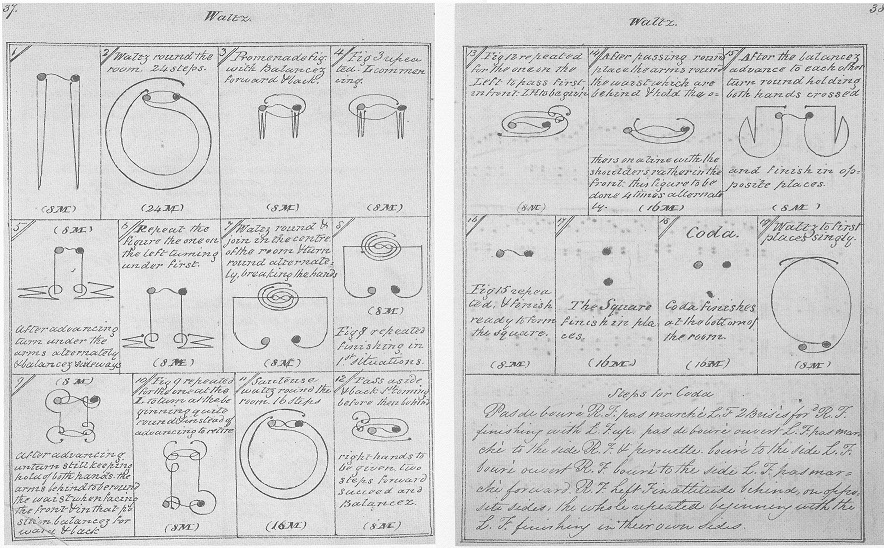 37.
Waltz.
1
2 Waltz round the
room 24 steps.
3 Promenade fig.
with Balancez
forward & back.
4 Fig 3 repea
ted. L commen
cing.
(8M)
(24M)
(8M)
(8M)
5
(8M)
After advancing
turn under the
arms alternately
& balancez sideways
6
Repeat the
figure the one on
the left turning
under first.
(8M)
7 Waltz round &
join in the centre
of the room & turn
round alternate-
ly, breaking the hands
(8M)
8
(8M)
Fig 7 repeated
finishing in
1st situations.
9
(8M)
After advancing
unturn still keeping
hold of both hands. the
arms behind to be round
the waist when facing
the front & in that po
sition balancez for
ward & back
10 Fig 9 repeated
for the one at the
L to turn at the be
ginning quite
round instead of
advancing to retire
(8M)
11 Sauteuse
waltz round the
room 16 steps
(16M)
12 Pass aside
& back 1st coming
before then behind
right hands to
be given two
steps forward
and
Balancez.
(8M)
38
Waltz.
13 Fig 12 repeated
for the one on the
Left to pass first
in front. L H to be given
(8M)
14 After passing round
place the arms round
the waist which are
behind & hold the o-
thers on a line with the
shoulders rather in the
front. this figure to be
done 4 times alternate
ly. (16M)
15 After the balancez
advance to each other
turn round holding
both hands crossed
and finish in op-
posite places.
(8M)
16
Fig 15 repea
ted. & finish
ready to form
the square.
(8M)
17
The Square
finish in pla
ces.
(16M)
18
Coda.
Coda finishes
at the bottom of
the room.
(16M)
19 Waltz to first
places singly.
(8M)
Steps for Coda
Pas de bouré R.F. pas marché L.F. 2 Brisés for R.F.
finishing with L.F. up. pas de bouré ouvert L.F. pas mar
ché to the side R.F. & pirouette. bouré to the side L.F.
bouré ouvert R.F. bouré to the side L.F. pas mar-
ché forward R.F. Left F in attitude behind, on oppo
site sides. the whole repeated beginning with the
L.F. finishing in their own sides.